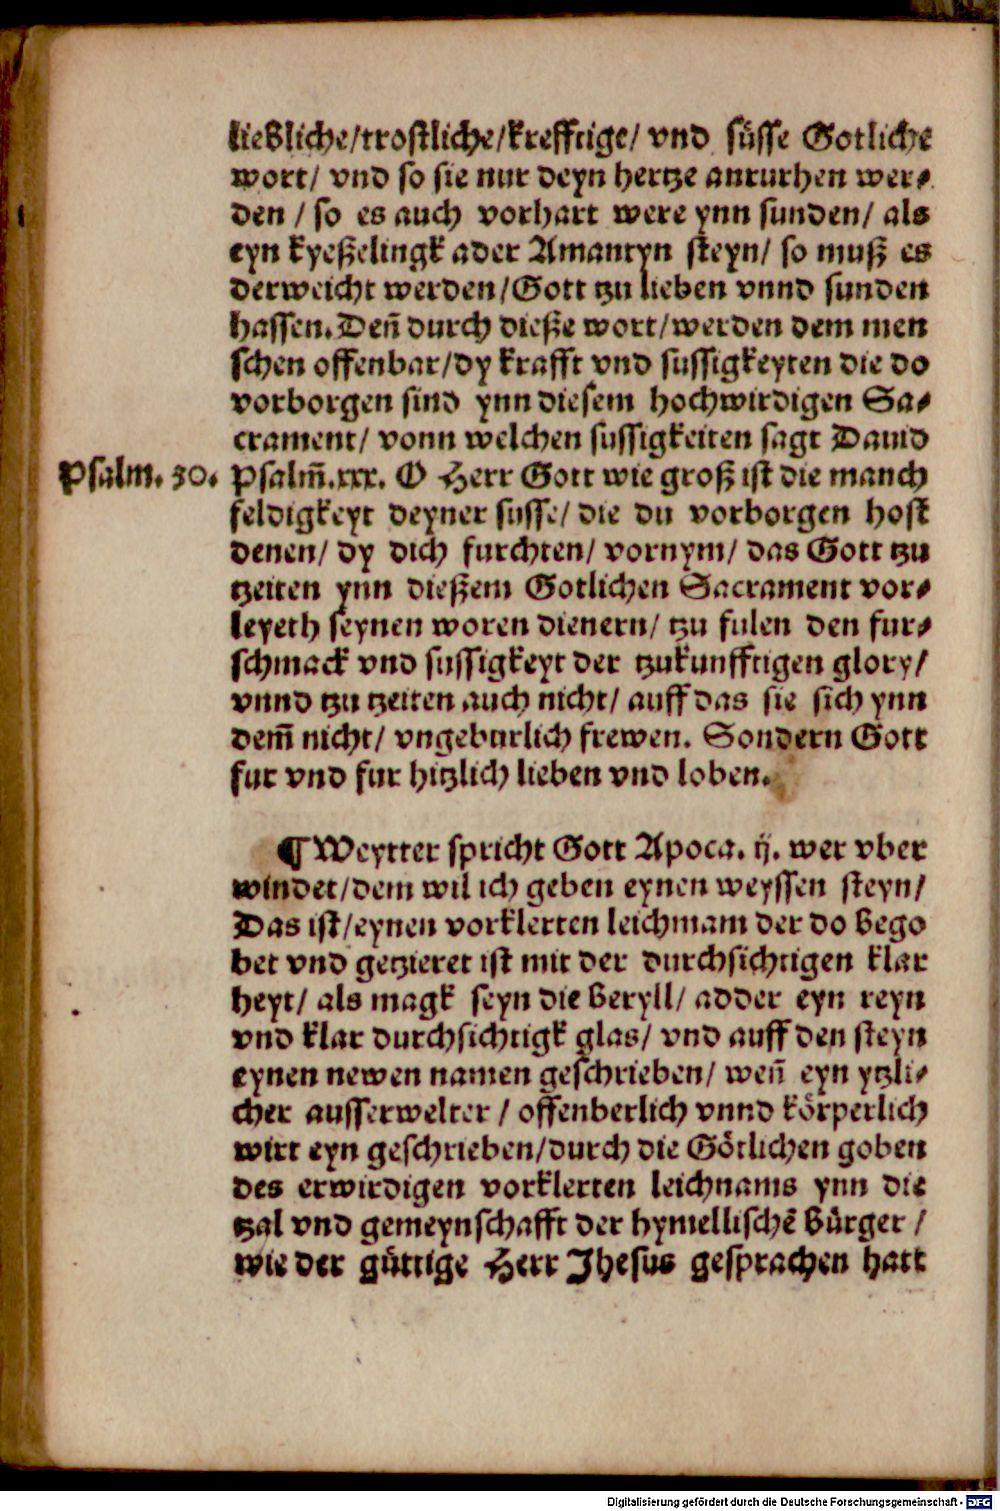 ließliche/trostliche/krefftige/ vnd süsse Gotliche
wort/ vnd so sie nur deyn hertze anrurhen wer⸗
den / so es auch vorhart were ynn sunden/ als
eyn kyeßelingk ader Amantyn steyn/ so muß es
derweicht werden/Gott tzu lieben vnnd sunden
hassen. Den̄ durch dieße wort/werden dem men
schen offenbar/dy krafft vnd sussigkeyten die do
vorborgen sind ynn diesem hochwirdigen Sa⸗
crament/ vonn welchen sussigkeiten sagt Dauid
Psalm. 30. Psalm̄.xxx. O Herr Gott wie groß ist die manch
feldigkeyt deyner susse/ die du vorborgen host
denen/ dy dich furchten/ vornym/ das Gott tzu
tzeiten ynn dießem Gotlichen Sacrament vor⸗
leyeth seynen woren dienern/ tzu fulen den fur⸗
schmack vnd sussigkeyt der tzukunfftigen glory/
vnnd tzu tzeiten auch nicht/ auff das sie sich ynn
dem̄ nicht/ vngeburlich frewen. Sondern Gott
fur vnd fur hitzlich lieben vnd loben.
¶ Weytter spricht Gott Apoca. ij. wer vber
windet/dem wil ich geben eynen weyssen steyn/
Das ist/eynen vorklerten leichmam der do bego
bet vnd getzieret ist mit der durchsichtigen klar
heyt/ als magk seyn die Beryll/ adder eyn reyn
vnd klar durchsichtigk glas/ vnd auff den steyn
eynen newen namen geschrieben/ wen̄ eyn ytzli⸗
cher ausserwelter / offenberlich vnnd körperlich
wirt eyn geschrieben/durch die Götlichen goben
des erwirdigen vorklerten leichnams ynn die
tzal vnd gemeynschafft der hymellischē Bürger /
wie der güttige Herr Jhesus gesprachen hatt
Digitalisierung gefördert durch die Deutsche Forschungsgemeinschaft - DFG